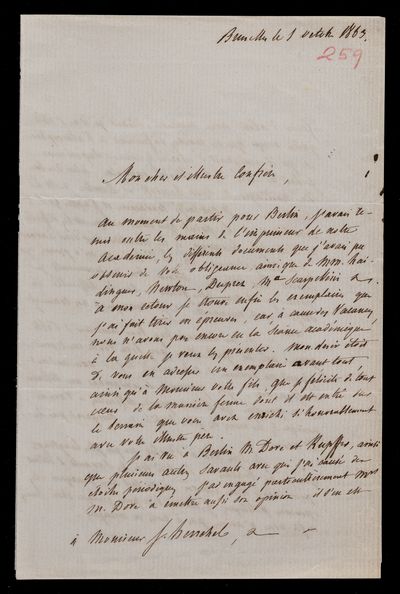 Bruxelles le 1 octobre 1863.
259
Mon cher et illustre Confrère,
au moment de partir pour Berlin, j'avais re-
mis entre les mains de l'imprimeur de notre
académie, les différents documents que j'avais pu
obtenir de votre obligeance, ainsi que de MM. Hai-
dinger, Newton, Duprez, Mme Scarpellini &.
à mon retour je trouve enfin les exemplaires que
j'ai fait tirer en épreuves, car à cause des vacances,
nous n'avons pas encore eu la séance académique
à la quelle je veux les présenter. Mon désir était
de vous en adresser un exemplaire avant tout,
ainsi qu'à Monsieur votre fils, que je félicite de tout
cœur de la manière ferme dont il est entré sur
le terrain que vous avez enrichi si honorablement
avec votre illustre père.
j'ai vu à Berlin M. Dove et Kupffer, ainsi
que plusieurs autres savants avec qui j'ai causé des
étoiles périodiques, j'ai engagé particulièrement
M. Dove à émettre aussi son opinion: il s'en est
à Monsieur J. Herschel, &